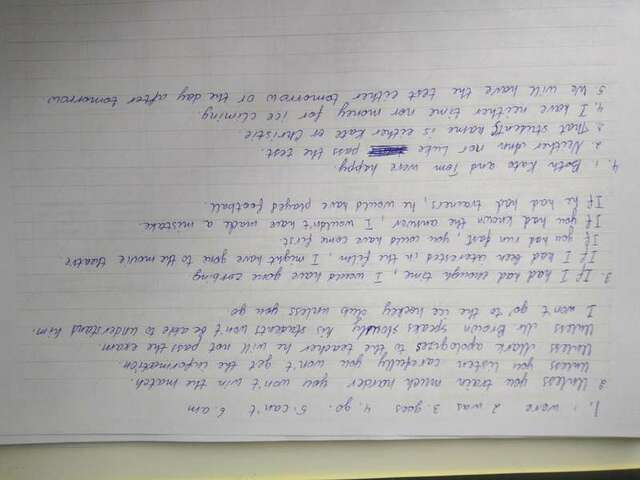 1. 1 were 2 was 3. goes 4. go. 5. can't 6. am
2 Unless you train much harder you won't win the match.
Unless you listen carefully you won't get the information
Unless Mark apologizes to the teacher he will not past the exam.
Unless Mr Brown speaks slowly his students won't be able to understans him.
I won't go to the ice heckey club unless you go
3 If I had had enough time, I would have gone zorbing
If I had been interested in the film, I might have gone to the movie theatre
If you had run fast, you could have come first
If you had known the answer, I wouldn't have made a mistake
If he had had trainers, he would have played football.
4. 1 Both Kate and Tom were happy.
2 Neither Ann nor Luke pass the test.
3 That students name is either Kate or Christie
4. I have neither time nor money for ice climing.
5 We will have the test either tomorrow or the day after tomorrow.